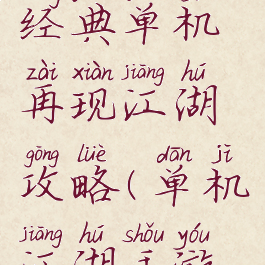 经典单机
zài xiàn jiāng hú
再现江湖
gōng lüè dān jī
攻略(单机
jiāng hú shǒu yóu
江湖手游